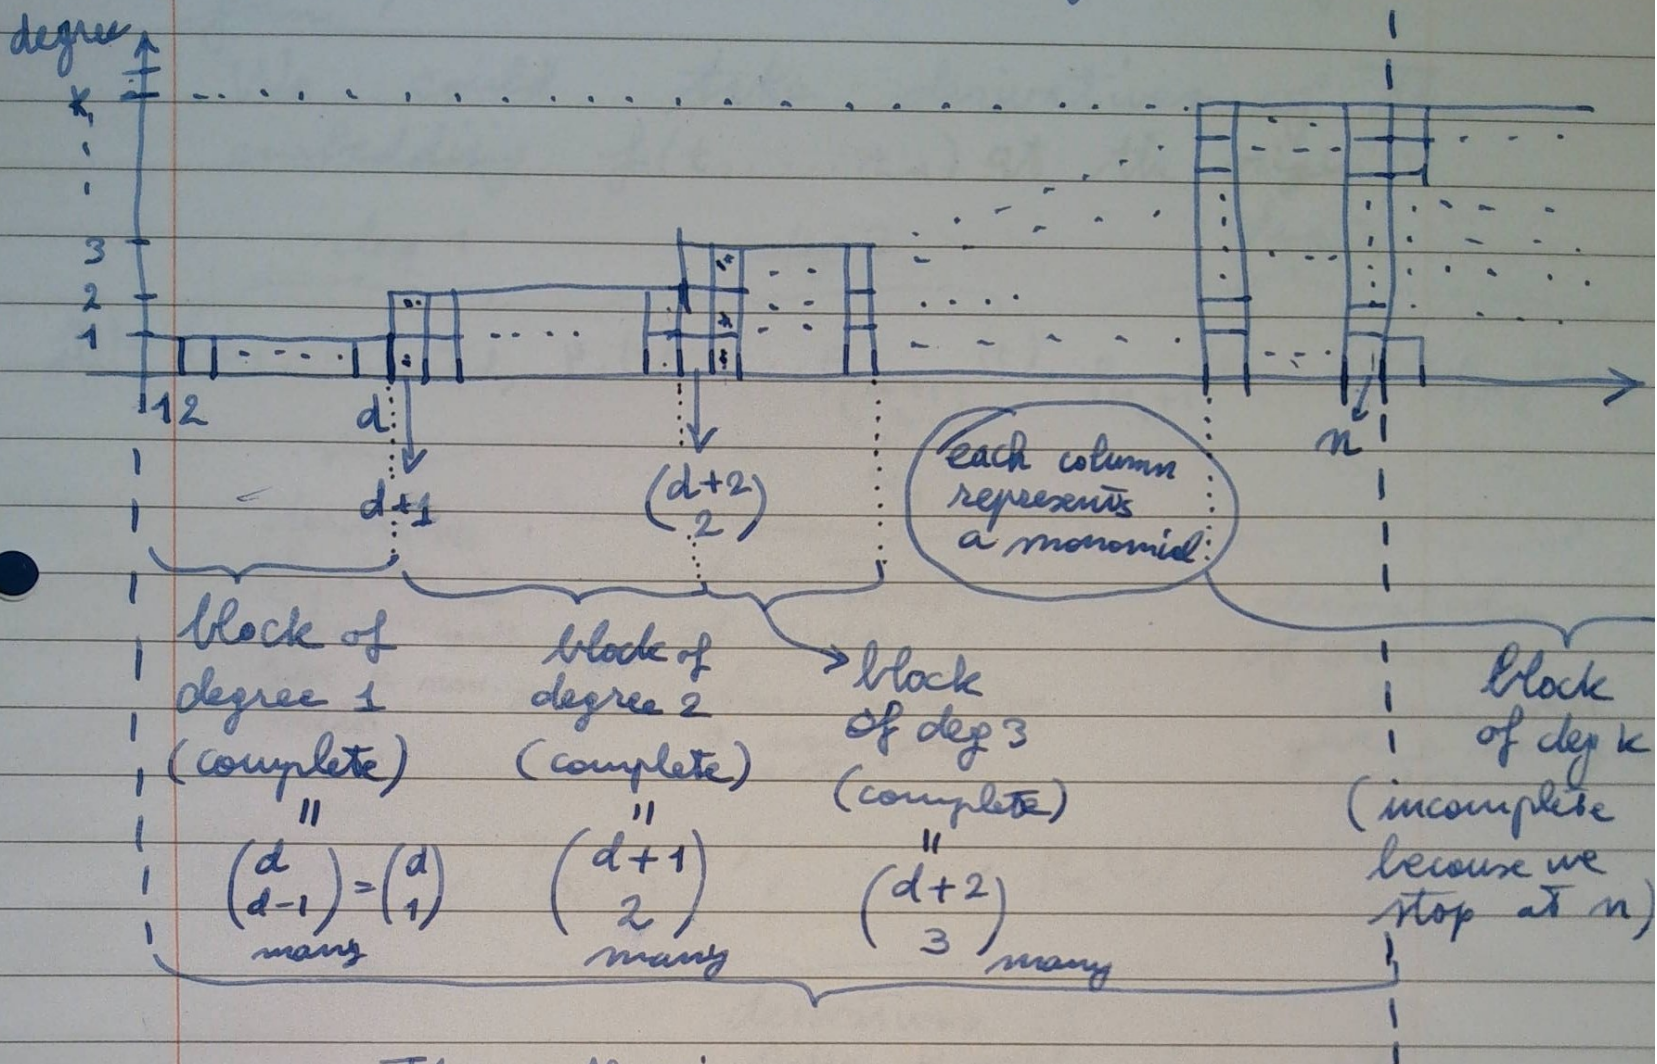 degree
k
3
2
1
1 2 d
n
d+1
(d+2 2)
each column
represents
a monomial
block of
degree 1
(complete)
=
(d d-1) = (d 1)
many
block of
degree 2
(complete)
=
(d+1 2)
many
block
of deg 3
(complete)
=
(d+2 3)
many
block
of deg k
(incomplete
because we
stop at n)